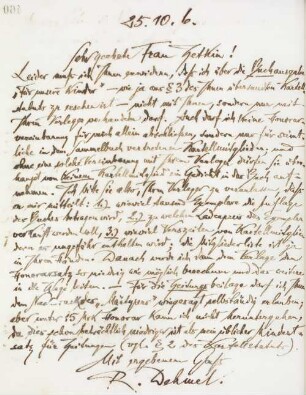 25.10.6.
Sehr geehrte Frau Zetkin!
Leider muß ich Ihnen erwidern, daß ich über die Buchausgabe
"für unsere Kinder" – wie ja aus § 3 der Ihnen übersandten Kartell-
statuten zu ersehen ist – nicht mit Ihnen, sondern nur mit
Ihrem Verleger verhandeln darf. Auch darf ich keine Honorar-
vereinbarung für mich allein abschließen, sondern nur für sämt-
liche in dem Sammelbuch vertretenen Kartellmitglieder, und
ohne eine solche Vereinbarung mit Ihrem Verleger dürfen Sie über-
haupt von keinem Kartellmitglied ein Gedicht in das Buch auf-
nehmen. Ich bitte Sie also, Ihren Verleger zu veranlassen, daß
er mir mitteilt: 1) wieviel tausend Exemplare die Auflage
des Buches betragen wird, 2) zu welchem Ladenpreis das Exemplar
verkauft werden soll, 3) wieviel Verszeilen von Kartellmitglie-
dern es ungefähr enthalten wird; die Mitgliederliste ist ja
in Ihren Händen. Danach würde ich dann dem Verlage den
Honorarsatz so niedrig wie möglich berechnen und das weitere
in die Wege leiten. – Für die Zeitungsbeilage darf ich Ihnen
den Nachdruck selbständig erlauben,
aber unter 15 Mk Honorar kann ich nicht heruntergehen,
da dies schon beträchtlich niedriger ist als mein üblicher Mindest-
satz für Zeitungen (vgl. § 2 der
Mit ergebenem Gruß
R. Dehmel.